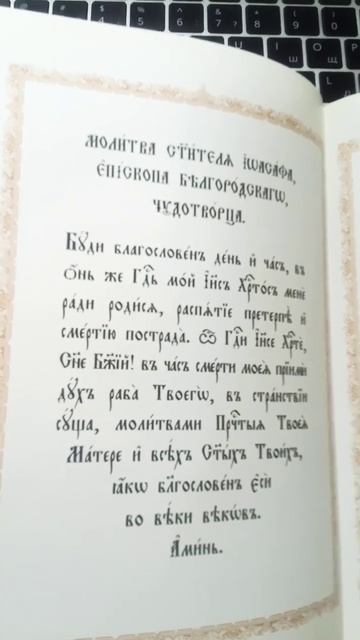 4 5 6 7 8 9 0
Г Ш Щ
Моли́тва ст҃и́телѧ і҆ѡаса́фа,
є҆пі́скопа бѣлгоро́дскагѡ,
чꙋдотво́рца.
Бꙋ́ди благослове́нъ де́нь и҆ ча́съ, въ
ѻ҆́нь же Гдⷭ҇ь мо́й І҆и҃съ Хрⷭ҇то́съ менє̀
ра́ди роди́сѧ, распѧ́тїе претерпѣ̀ и҆
сме́ртїю пострада̀. Ѽ Гдⷭ҇и І҆и҃се Хрⷭ҇тѐ,
Сн҃е Бж҃їй! въ ча́съ сме́рти моеѧ̀ прїимѝ
дꙋ́хъ раба̀ Твоегѡ̀, въ стра́нствїи
сꙋ́ща, моли́твами Прчⷭ҇тыѧ Твоеѧ̀
Ма́тере и҆ всѣ́хъ Ст҃ы́хъ Твои́хъ,
ꙗ҆́кѡ бл҃гослове́нъ є҆сѝ
во вѣ́ки вѣкѡ́въ.
А҆ми́нь.